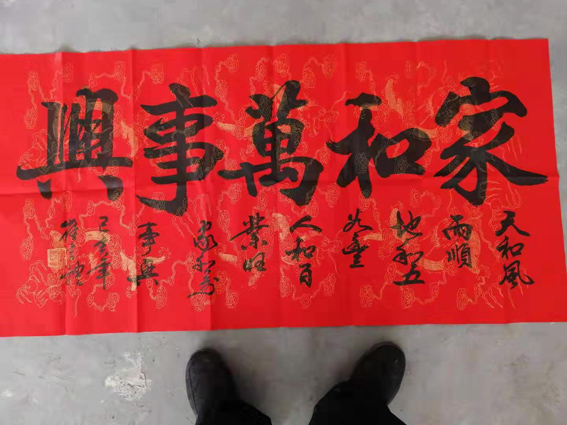 家和萬事興
天和風
雨順
地和五
谷豐
人和百
業旺
家和萬
事興
己亥年